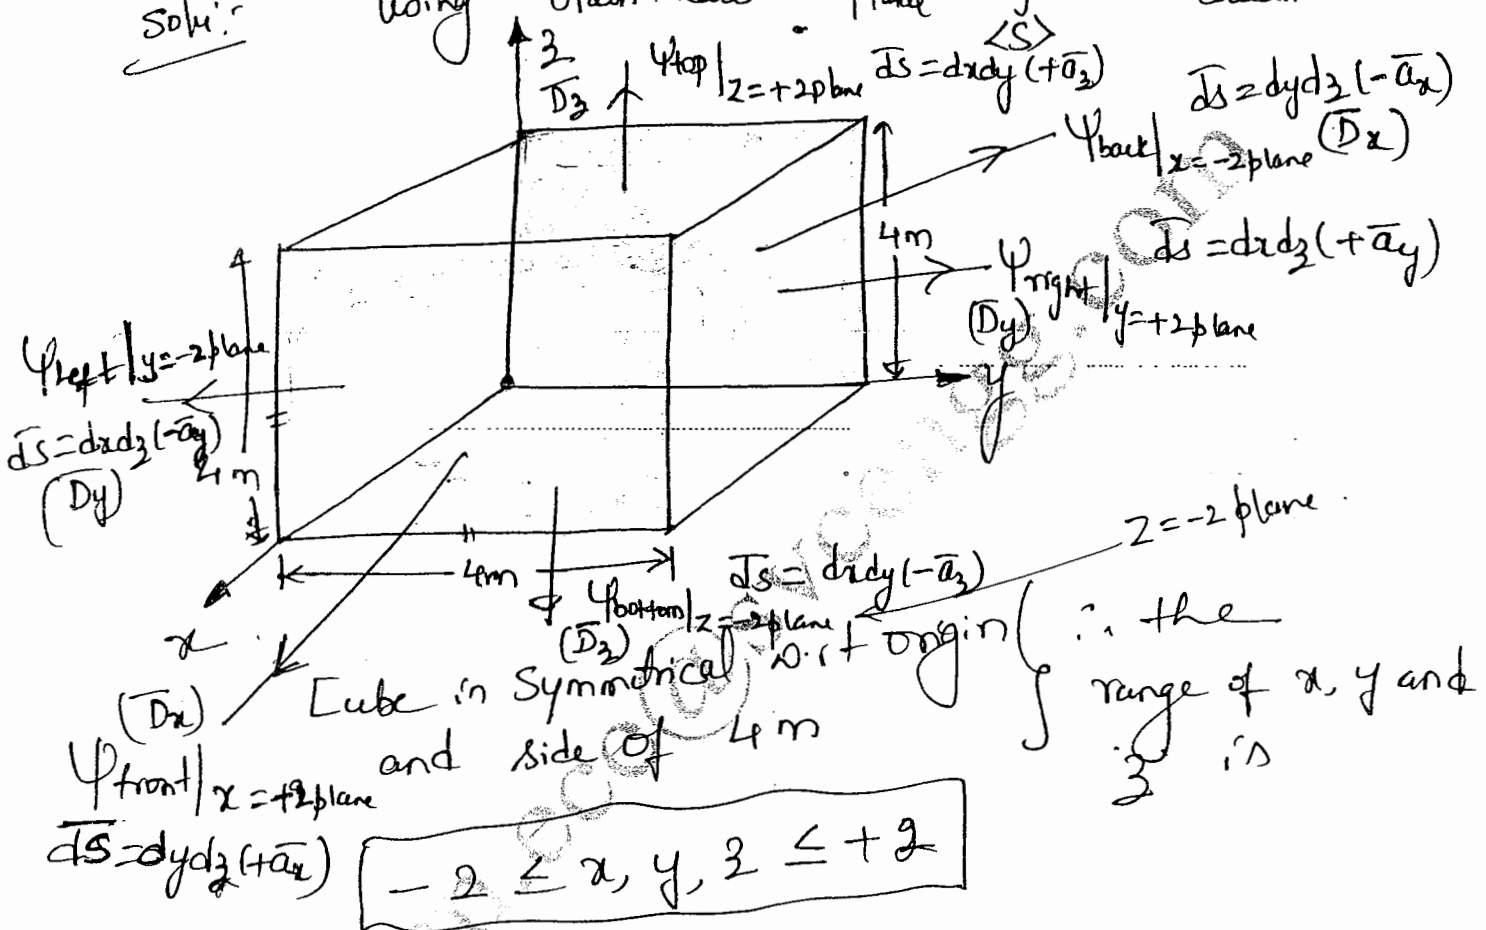 Soln:- using
<S>
z
D̄z
ψtop|z=+2plane d̄s = dxdy(+āz)
d̄s = dydz(-āx)
ψback|x=-2plane (D̄x)
4m
d̄s = dxdz(+āy)
ψright|y=+2plane
(D̄y)
y
ψleft|y=-2plane
d̄s = dxdz(-āy)
(D̄y)
4m
4m
z=-2 plane.
d̄s = dxdy(-āz)
ψbottom|z=-2plane
(D̄z)
x
(D̄x)
ψfront|x=+2plane
d̄s = dydz(+āx)
[ube in Symmetrical w.r.t origin
and side of 4m
∴ the
range of x, y and
z is
-2 ≤ x, y, z ≤ +2